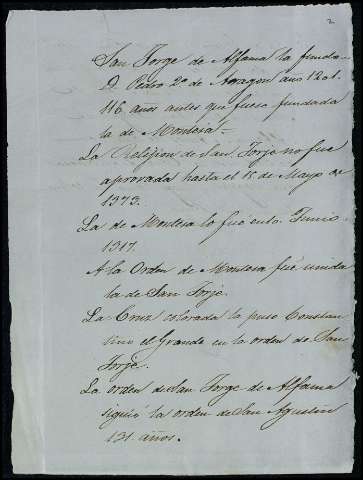 2
San Jorge de Alfama la fundo
D. Pedro 2º de Aragon ano 1201.
116 años antes que fuese fundada
la de Montesa.-
La Religion de San Jorje no fue
aprovada hasta el 15 de Mayo de
1373.
La de Montesa lo fué en Junio
1317.
A la Orden de Montesa fué unida
la de San Jorje.
La Cruz colorada la puso Constan
tino el Grande en la orden de San
Jorje.
La orden de San Jorge de Alfama
siguió la orden de San Agustin
131 años.